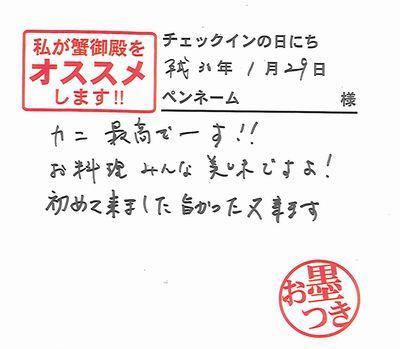 私が蟹御殿を
オススメ
します!!
チェックインの日にち
平成31年1月29日
ペンネーム 様
カニ最高でーす!!
お料理みんな美味ですよ!
初めて来ました旨かった又来ます
お墨つき